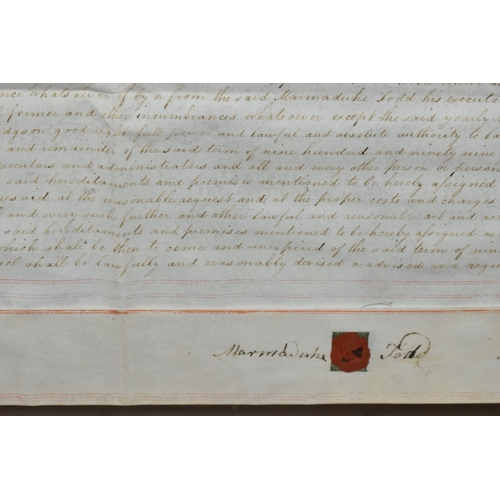 nce whatsoever of by or from the said Marmaduke Todd his executo
former and other incumbrances whatsoever except the said yearly
good right full power and lawful and absolute authority to ba
and remainder of the said term of nine hundred and ninety nine
xecutors and administrators and all and every other person or person
said hereditaments and premises mentioned to be hereby assigned
said at the reasonable request and at the proper costs and charges
and every such further and other lawful and reasonable act and
said hereditaments and premises mentioned to be hereby assigned as
which shall be then to come and unexpired of the said term of nin
sel shall be lawfully and reasonably devised or advised and requ
Marmaduke Todd